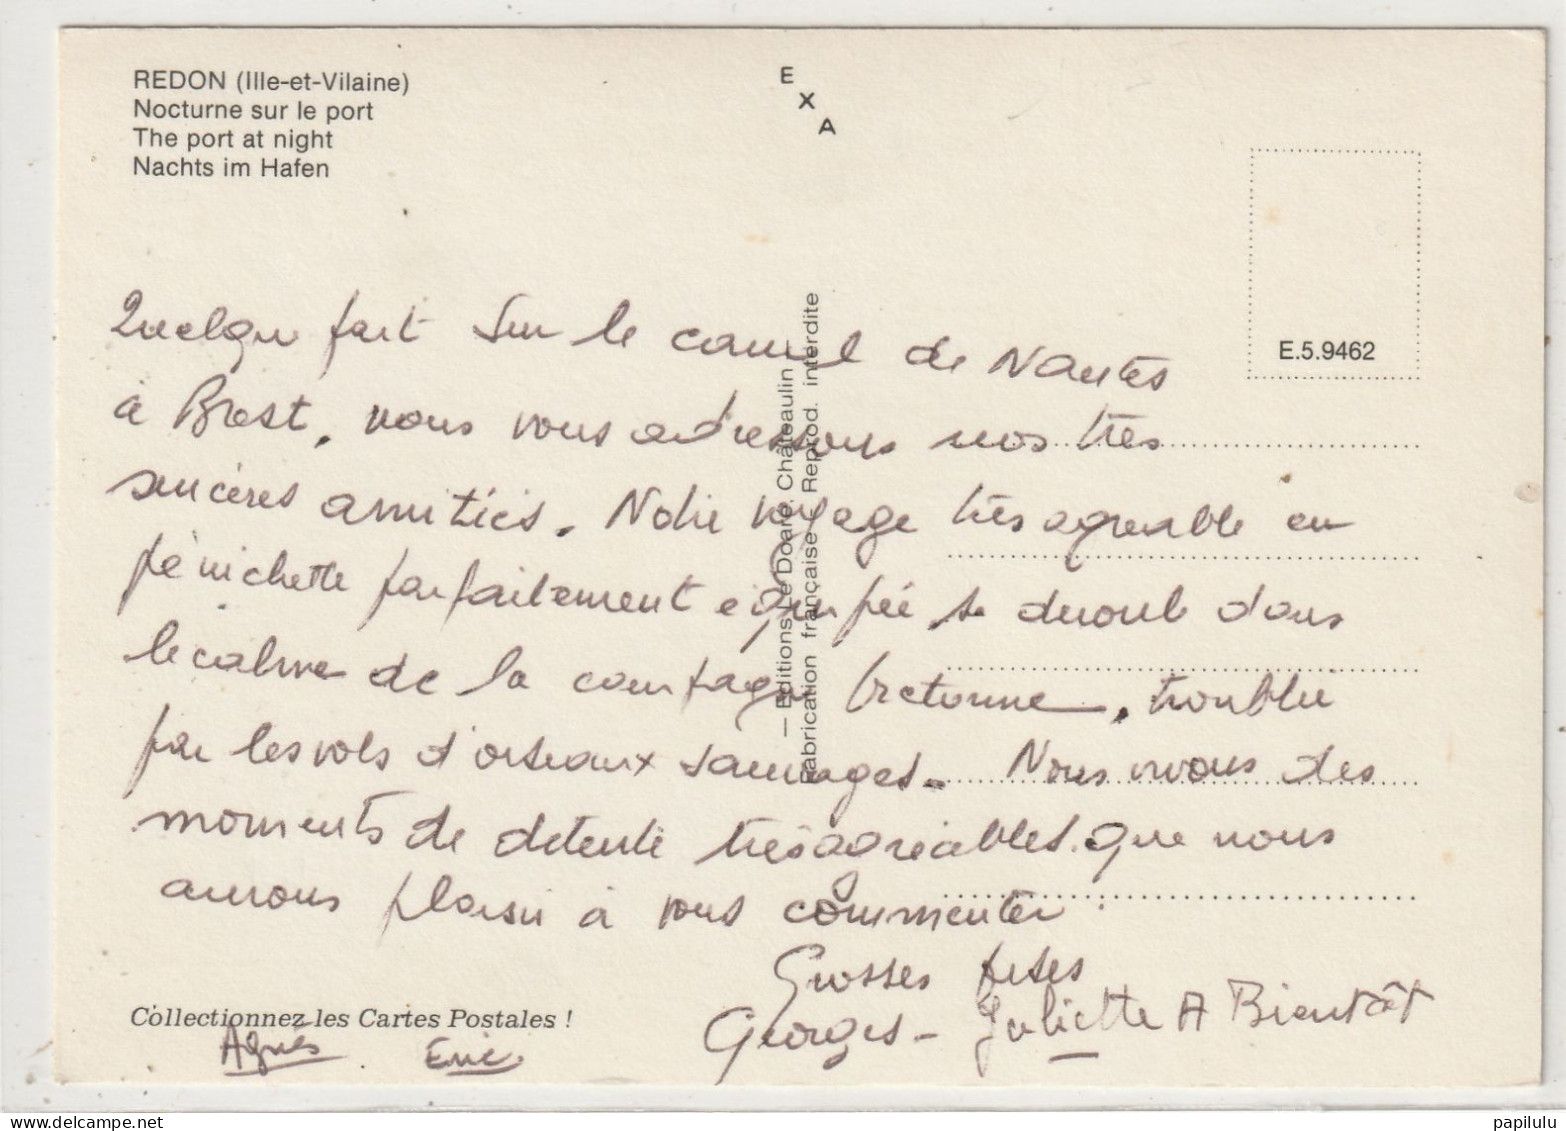 REDON (Ille-et-Vilaine)
Nocturne sur le port
The port at night
Nachts im Hafen
E
X
A
E.5.9462
Quelque part sur le canal de Nantes
à Brest, nous vous adressons nos très
sincères amitiés. Notre voyage très agréable en
pénichette parfaitement équipée, se déroule dans
le calme de la campagne bretonne, troublée
par les vols d'oiseaux sauvages. Nous vivons des
moments de détente très agréables que nous
aurons plaisir à vous commenter.
Grosses bises
Georges - Juliette A Bientôt
Agnès Eric
— Editions Le Doaré, Châteaulin —
Fabrication française - Reprod. interdite
Collectionnez les Cartes Postales !
www.delcampe.net
papilulu